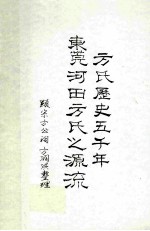 方氏歷史五千年
東莞河田方氏之源流
宗方公祠 方 整理